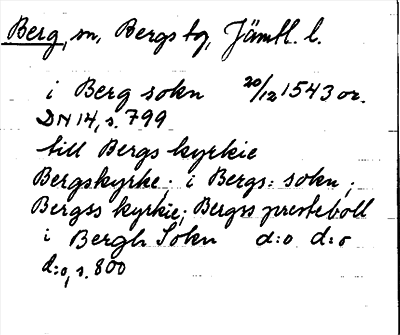 Berg, sn, Bergs tg, Jämtl. l.
i Berg sokn 20/12 1543 or.
DN 14, s. 799
till Bergs kyrkie
Bergskyrke; i Bergs: sokn;
Bergss kyrkie; Bergss presteboll
i Bergh Sokn d:o d:o
d:o, s. 800